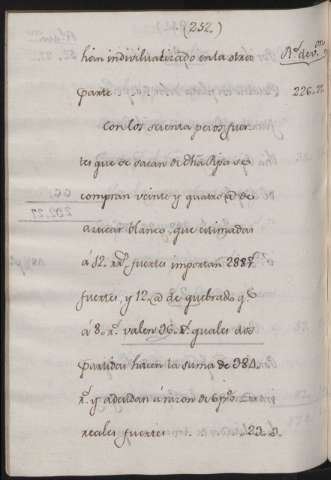 (252.)
han individualizado en la otra
parte . . . .
R.^s de v.^on
226.27
Con los sesenta pesos fuer-
tes que se sacan de dha Ripa se
compran veinte y quatro @ de
azucar blanco, que estimadas
á 12. r.^s fuertes importan 288 r.^s
fuertes, y 12 @ de quebrado q.^e
á 8. r.^s valen 96. r.^s quales dos
partidas hacen la suma de 384.
r.^s y adeudan á razon de 6 p%
reales fuertes . . . 23.